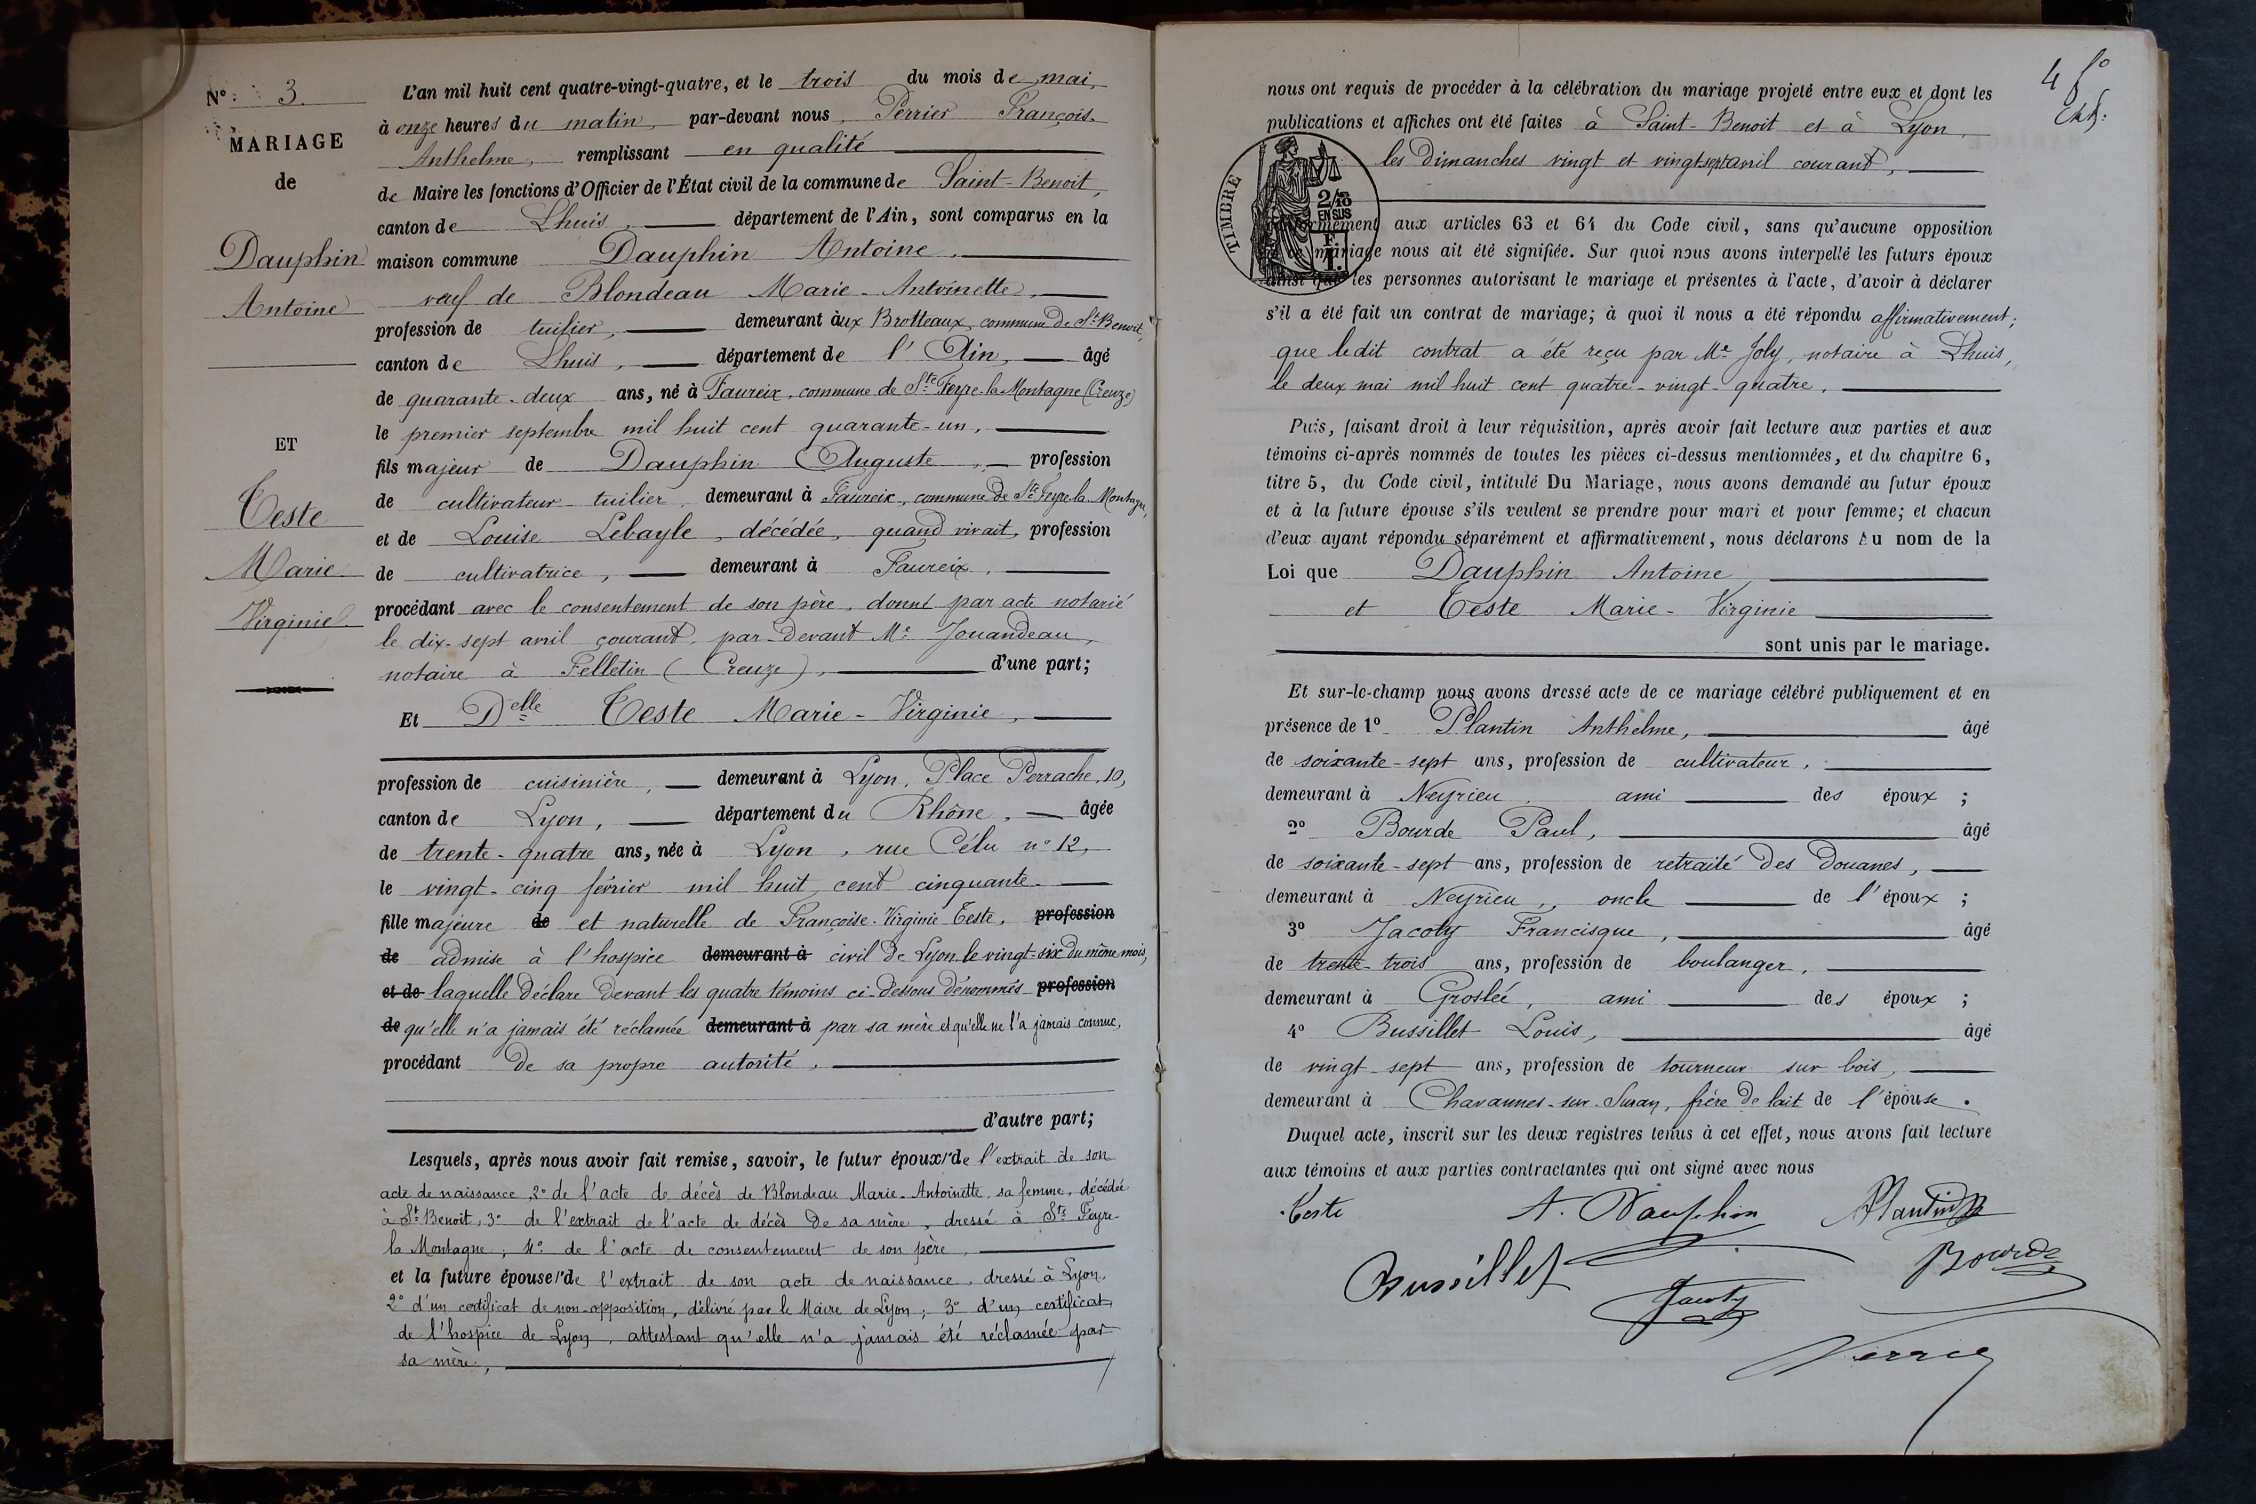 N° 3.
MARIAGE
de
Dauphin
Antoine
ET
Teste
Marie
Virginie
L'an mil huit cent quatre-vingt-quatre, et le trois du mois de mai,
à onze heures du matin, par-devant nous, Perrier François-
Anthelme, remplissant en qualité
de Maire les fonctions d'Officier de l'État civil de la commune de Saint-Benoit,
canton de Lhuis, département de l'Ain, sont comparus en la
maison commune Dauphin Antoine,
veuf de Blondeau Marie-Antoinette,
profession de tuilier, demeurant aux Brotteaux, commune de St-Benoit,
canton de Lhuis, département de l'Ain, âgé
de quarante-deux ans, né à Faureix, commune de Ste Feyre-la-Montagne (Creuze)
le premier septembre mil huit cent quarante-un,
fils majeur de Dauphin Auguste, profession
de cultivateur-tuilier, demeurant à Faureix, commune de Ste Feyre-la-Montagne,
et de Louise Lebayle, décédée, quand vivait, profession
de cultivatrice, demeurant à Faureix,
procédant avec le consentement de son père, donné par acte notarié
le dix-sept avril courant, par-devant Me Jouandeau,
notaire à Felletin (Creuze), d'une part;
Et Delle Teste Marie-Virginie,
profession de cuisinière, demeurant à Lyon, Place Perrache, 10,
canton de Lyon, département du Rhône, âgée
de trente-quatre ans, née à Lyon, rue Célu n° 12,
le vingt-cinq février mil huit cent cinquante
fille majeure de et naturelle de Françoise-Virginie Teste, profession
de admise à l'hospice demeurant à civil de Lyon le vingt-six du même mois,
et de laquelle déclare devant les quatre témoins ci-dessous dénommés profession
de qu'elle n'a jamais été réclamée demeurant à par sa mère et qu'elle ne l'a jamais connue,
procédant de sa propre autorité,
d'autre part;
Lesquels, après nous avoir fait remise, savoir, le futur époux 1° de l'extrait de son
acte de naissance, 2° de l'acte de décès de Blondeau Marie-Antoinette, sa femme, décédée
à St Benoit, 3° de l'extrait de l'acte de décès de sa mère, dressé à Ste Feyre-
la Montagne, 4° de l'acte de consentement de son père,
et la future épouse 1° de l'extrait de son acte de naissance, dressé à Lyon,
2° d'un certificat de non-opposition, délivré par le Maire de Lyon; 3° d'un certificat
de l'hospice de Lyon, attestant qu'elle n'a jamais été réclamée par
sa mère,
4 fo
nous ont requis de procéder à la célébration du mariage projeté entre eux et dont les
publications et affiches ont été faites à Saint-Benoit et à Lyon,
les Dimanches vingt et vingt-sept avril courant,
TIMBRE
2/10
EN SUS
conformément aux articles 63 et 64 du Code civil, sans qu'aucune opposition
mariage nous ait été signifiée. Sur quoi nous avons interpellé les futurs époux
ainsi que les personnes autorisant le mariage et présentes à l'acte, d'avoir à déclarer
s'il a été fait un contrat de mariage; à quoi il nous a été répondu affirmativement;
que ledit contrat a été reçu par Me Joly, notaire à Lhuis,
le deux mai mil huit cent quatre-vingt-quatre.
Puis, faisant droit à leur réquisition, après avoir fait lecture aux parties et aux
témoins ci-après nommés de toutes les pièces ci-dessus mentionnées, et du chapitre 6,
titre 5, du Code civil, intitulé Du Mariage, nous avons demandé au futur époux
et à la future épouse s'ils veulent se prendre pour mari et pour femme; et chacun
d'eux ayant répondu séparément et affirmativement, nous déclarons Au nom de la
Loi que Dauphin Antoine,
et Teste Marie-Virginie
sont unis par le mariage.
Et sur-le-champ nous avons dressé acte de ce mariage célébré publiquement et en
présence de 1° Plantin Anthelme, âgé
de soixante-sept ans, profession de cultivateur,
demeurant à Neyrieu, ami des époux ;
2° Bourde Paul, âgé
de soixante-sept ans, profession de retraité des Douanes,
demeurant à Neyrieu, oncle de l'époux ;
3° Jacoty Francisque, âgé
de trente-trois ans, profession de boulanger,
demeurant à Groslée, ami des époux ;
4° Bussillet Louis, âgé
de vingt-sept ans, profession de tourneur sur bois,
demeurant à Chavannes-sur-Suran, frère de lait de l'épouse.
Duquel acte, inscrit sur les deux registres tenus à cet effet, nous avons fait lecture
aux témoins et aux parties contractantes qui ont signé avec nous
Teste A. Dauphin APlantin
Bussillet Jacoty Bourde
Perrier